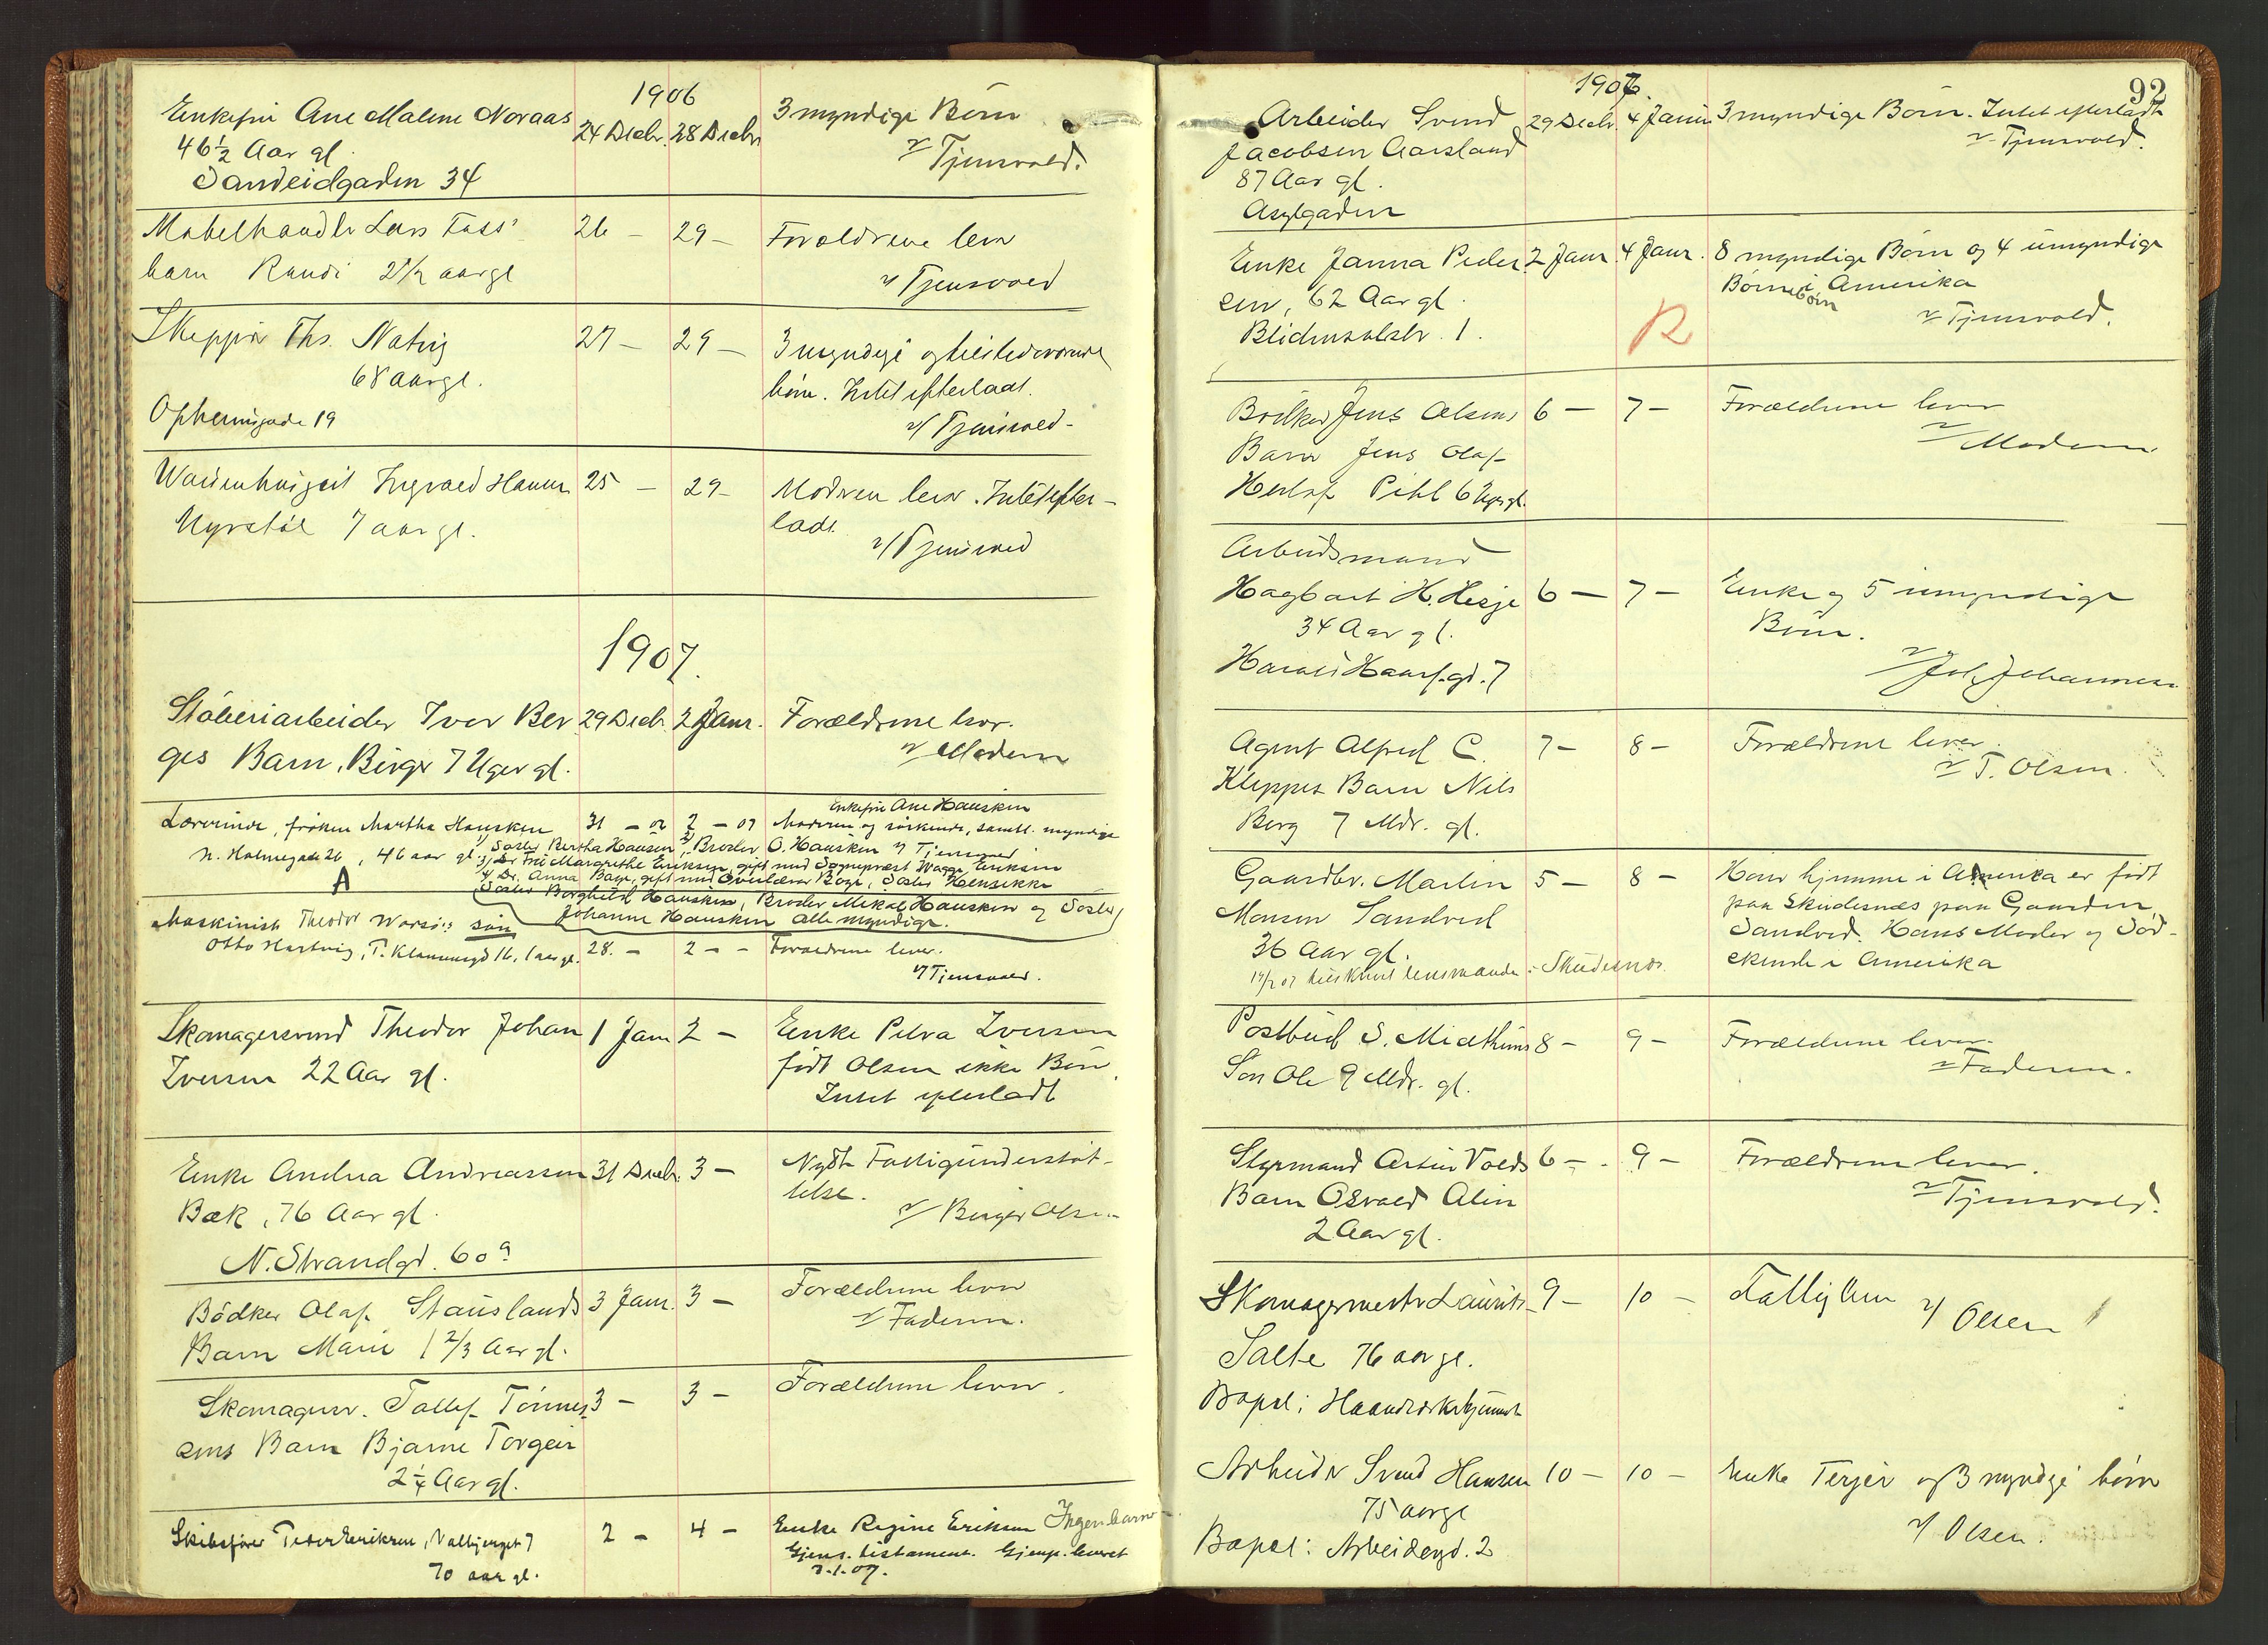 1906
Enkefru Ane Malene Noraas 24 Decbr. 28 Decbr 3 myndige Børn
46 1/2 Aar gl. v/ Tjensvold.
Sandeidgaden 34
Møbelhandler Lars Foss' 26 – 29 – Forældrene lever
barn Randi 2 1/2 aar gl v/ Tjensvold
Skipper Ths. Natvig 27 – 29 – 3 myndige og tilstedeværende
68 aar gl. børn. Intet efterladt.
v/ Tjensvold –
19
Ingvald 25 – 29 – Modren lever. Intet efter–
7 aar gl. ladt
v/ Tjensvold
1907.
Støberiarbeider Iver Ber 29 Decbr. 2 Janr. Forældrene lever.
ges Barn, Birger 7 Uger gl. v/ Moderen
Enkefru Ane Hausken
Lærerinde, frøken Martha Hausken 31 – 06 2 – 07 Moderen og søskende, samtl. myndige
N. Holmegade 26, 46 aar gl. 1/ Søster Bertha Hausken, 2/ Broder O. Hausken v/ Tjensvold
3/ Do Fru Margrethe Eriksen, gift med Sogneprest Eriksen
A 4/ Do. Anna Bøge, gift med Overlærer Bøge, Søster Henrikke
Søster Borghild Hausken, Broder Mikal Hausken og Søster
Johanne Hausken alle myndige.
Maskinist Theodor søn
Otto Hartvig, 16, 1 aar gl. 28. – 2 – – Forældrene lever.
v/ Tjensvold.
Skomagersvend Theodor Johan 1 Janr 2 – Enke Petra Iversen
Iversen 22 Aar gl. født Olsen ikke Børn.
Intet efterladt
Enke Andrea Andreassen 31 Decbr. 3 – Nydt Fattigunderstøt–
Bæk, 76 Aar gl. telse.
v/ Birger Olsen
N. Strandgd. 60 a
Bødker Olaf Stauslands 3 Janr. 3 – Forældrene lever
Barn Marie 1 2/3 Aar gl. v/ Faderen.
Skomagersv. Tollef Tønnes 3 – 3 – Forældrene lever.
sens Barn Bjarne Torgeir
2 1/4 Aar gl.
Skibsfører Peder Eriksen, Valbjerget 7 2 – 4 – Enke Regine Eriksen Ingen barn
70 aar gl. Gjens. testament. Gjenp. leveret
3-1-07.
92
1907.
Arbeider Svend 29 Decbr. 4 Janr 3 myndige Børn. Intet efterladt
Jacobsen Aarsland v/ Tjensvold.
87 Aar gl.
Asylgaden
Enke Janna Peder 2 Janr. 4 Janr. 8 myndige Børn og 4 umyndige
sen, 62 Aar gl. Børnebørn i Amerika
Blidensolstr. 1. R v/ Tjensvold.
Jens Olsens 6 – 7 – Forældrene lever
Barn Jens Olaf v/ Moderen
Pihl 6 Uger gl.
Arbeidsmand
Hagbart H. Hesje 6 – 7 – Enke og 5 umyndige
34 Aar gl. Børn.
Harald Haarf.gd. 7 v/ Joh. Johannesen
Agent Alfred C. 7 – 8 – Forældrene lever
Kleppes Barn Nils v/ T. Olsen.
Berg 7 Mdr. gl.
Gaardbr. Martin 5 – 8 – Hører hjemme i Amerika er født
Monsen Sandved paa Skudesnæs paa Gaarden
36 Aar gl. Sandved. Hans Moder og Sød–
tilskrevet lensmanden i Skudesnæs. skende i Amerika
Postbud S. Midthuns 8 – 9 – Forældrene lever.
Søn Ole 9 Mdr. gl. v/ Faderen.
Styrmand Artur Volds 6 – 9 – Forældrene lever.
Barn Osvald Alin v/ Tjensvold.
2 Aar gl.
Skomagermester Laurits 9 – 10 – Fattiglem v/ Olsen
Salte 76 aar gl.
Bopæl: Haandværkshjemmet
Arbeider Svend Hansen 10 – 10 – Enke Terjer og 3 myndige børn
75 aar gl v/ Olsen.
Bopæl: Arbeidergd. 2